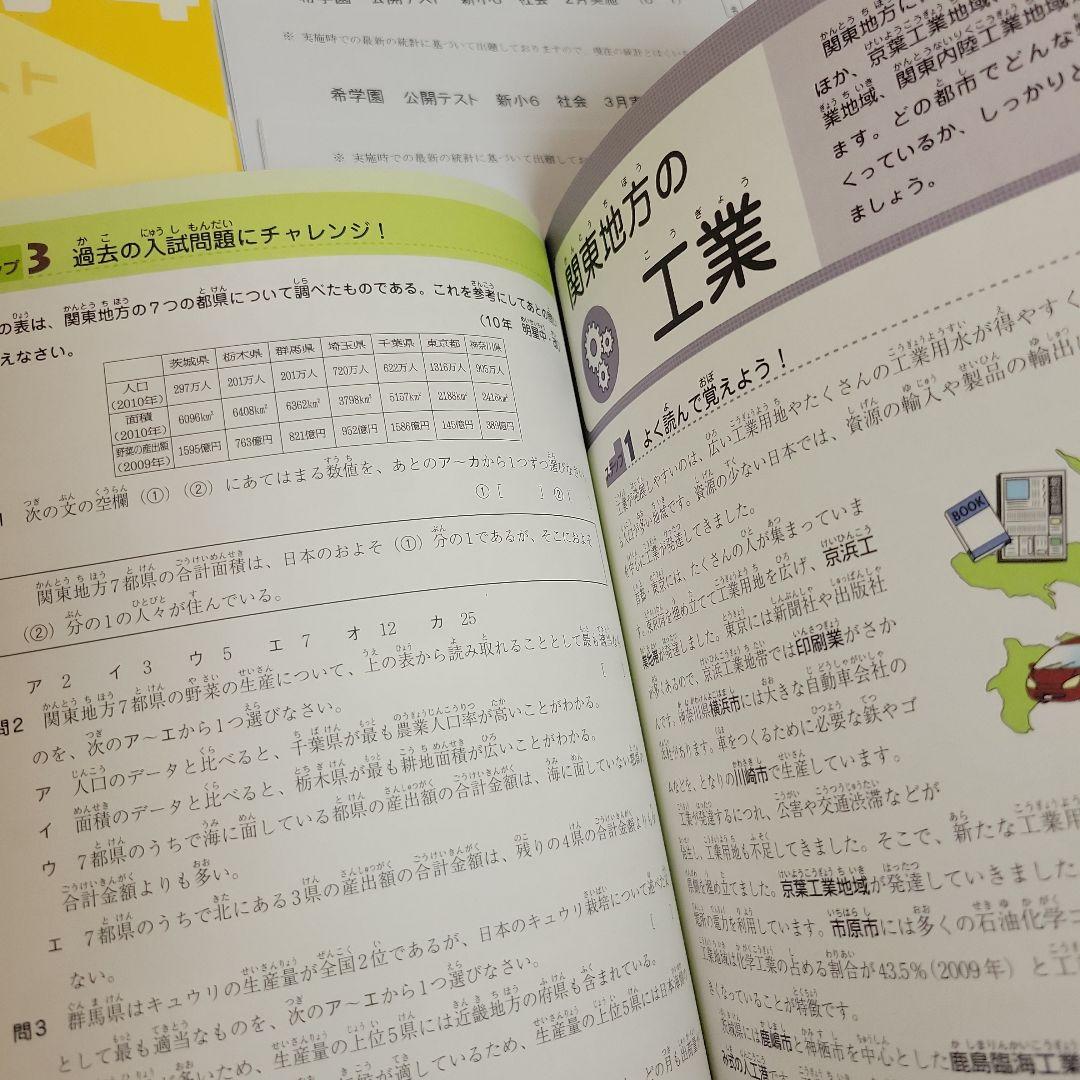 希学園 公開テスト 新小6 社会 2月実施
※ 実施時での最新の統計に基づいて出題しておりますので、現在の統計とは
希学園 公開テスト 新小6 社会 3月実
※ 実施時での最新の統計に基づいて出題してお
ップ3 過去の入試問題にチャレンジ！
の表は、関東地方の7つの都県について調べたものである。これを参考にしてあとの
えなさい。
(10年 明星中・改)
茨城県 栃木県 群馬県 埼玉県 千葉県 東京都 神奈川県
人口(2010年) 297万人 201万人 201万人 720万人 622万人 1316万人 905万人
面積(2010年) 6096km² 6408km² 6362km² 3798km² 5157km² 2188km² 2416km²
野菜の産出額(2009年) 1595億円 763億円 821億円 952億円 1586億円 145億円 389億円
次の文の空欄（①）（②）にあてはまる数値を、あとのア〜カから1つずつ選びなさい
①［　］②［
関東地方7都県の合計面積は、日本のおよそ（①）分の1であるが、そこにおよそ
（②）分の1の人々が住んでいる。
ア 2 イ 3 ウ 5 エ 7 オ 12 カ 25
問2 関東地方7都県の野菜の生産について、上の表から読み取れることとして最も適当な
のを、次のア〜エから1つ選びなさい。
ア 人口のデータと比べると、千葉県が最も農業人口率が高いことがわかる。
イ 面積のデータと比べると、栃木県が最も耕地面積が広いことがわかる。
ウ 7都県のうちで海に面している都県の産出額の合計金額は、海に面していない
合計金額よりも多い。
エ 7都県のうちで北にある3県の産出額の合計金額は、残りの4県の合計金額よりも
ない。
問3 群馬県はキュウリの生産量が全国2位であるが、日本のキュウリ栽培について述べた
として最も適当なものを、次のア〜エから1つ選びなさい。
生産量の上位5県には近畿地方の府県も含まれている。
多いため、生産量の上位5県には日本海
気候が適しているため、
関東地方に
ほか、京葉工業地域、
業地域、関東内陸工業地域
ます。どの都市でどんな
くっているか、しっかりと
ましょう。
関東地方の
工業
ステップ1 よく読んで覚えよう！
工業が発展しやすいのは、広い工業用地やたくさんの工業用水が得やすく
地域です。資源の少ない日本では、資源の輸入や製品の輸出
工業が発達してきました。
首都・東京には、たくさんの人が集まっていま
す。東京湾を埋め立てて工業用地を広げ、京浜工
業地帯が発達しました。東京には新聞社や出版社
が多くあるので、京浜工業地帯では印刷業がさか
んです。神奈川県横浜市には大きな自動車会社の
があります。車をつくるために必要な鉄やゴ
ムなどを、となりの川崎市で生産しています。
工業が発達するにつれ、公害や交通渋滞などが
発生し、工業用地も不足してきました。そこで、新たな工業用
を埋め立てました。京葉工業地域が発達していきました
の電力を利用しています。市原市には多くの石油化学コ
工業地域は化学工業の占める割合が43.5%（2009年）と工
きくなっていることが特徴です。
茨城県には鹿嶋市と神栖市を中心とした鹿島臨海工業
み式の人工港で
BOOK